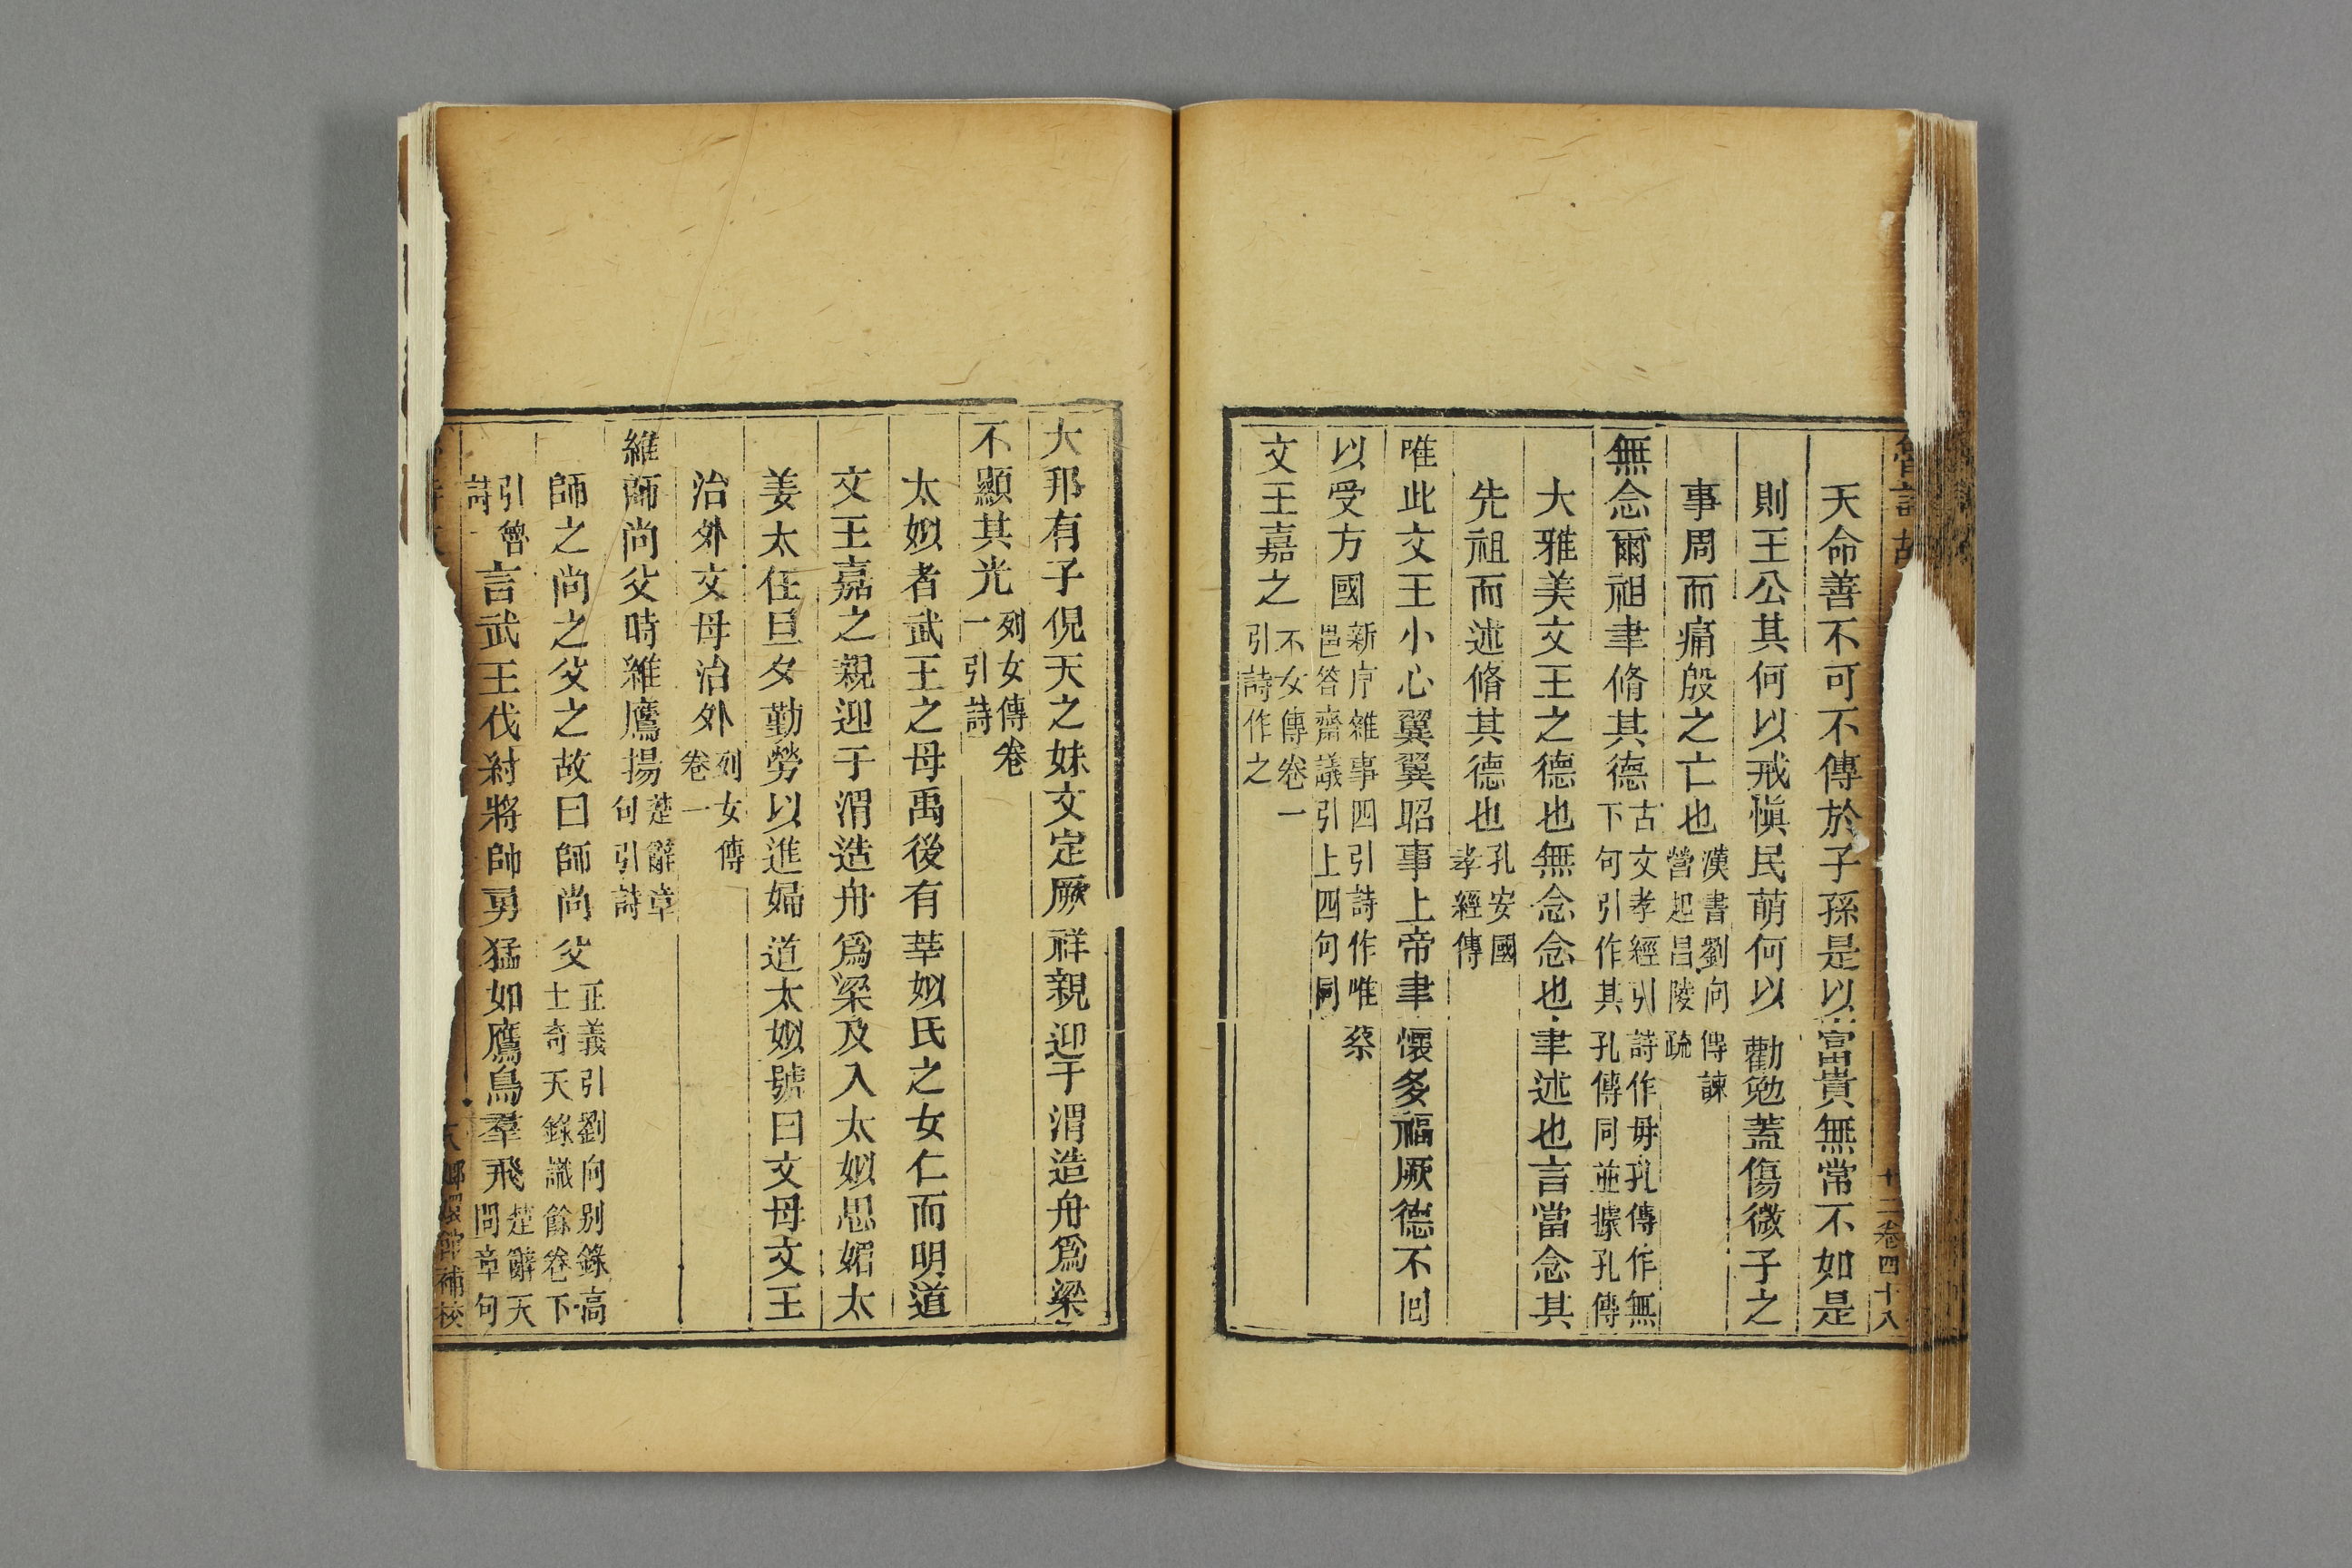 魯詩故
十二卷四十八
天命善不可不傳於子孫是以富貴無常不如是
則王公其何以戒愼民萌何以勸勉蓋傷微子之
事周而痛殷之亡也漢書劉向傳諫營起昌陵疏
無念爾祖聿脩其德古文孝經引詩作毋孔傳作無下句引作其孔傳同並據孔傳
大雅美文王之德也無念念也聿述也言當念其
先祖而述脩其德也孔安國孝經傳
唯此文王小心翼翼昭事上帝聿懷多福厥德不回
以受方國新序雜事四引詩作唯蔡邕答齋議引上四句同
文王嘉之不女傳卷一引詩作之
大邦有子俔天之妹文定厥祥親迎于渭造舟爲梁
不顯其光列女傳卷一引詩
太姒者武王之母禹後有莘姒氏之女仁而明道
文王嘉之親迎于渭造舟爲梁及入太姒思媚太
姜太任旦夕勤勞以進婦道太姒號曰文母文王
治外文母治外列女傳卷一
維師尚父時維鷹揚楚辭章句引詩
師之尚之父之故曰師尚父正義引劉向别錄高士奇天錄識餘卷下
引魯詩言武王伐紂將帥勇猛如鷹鳥羣飛楚辭天問章句
嬛館補校